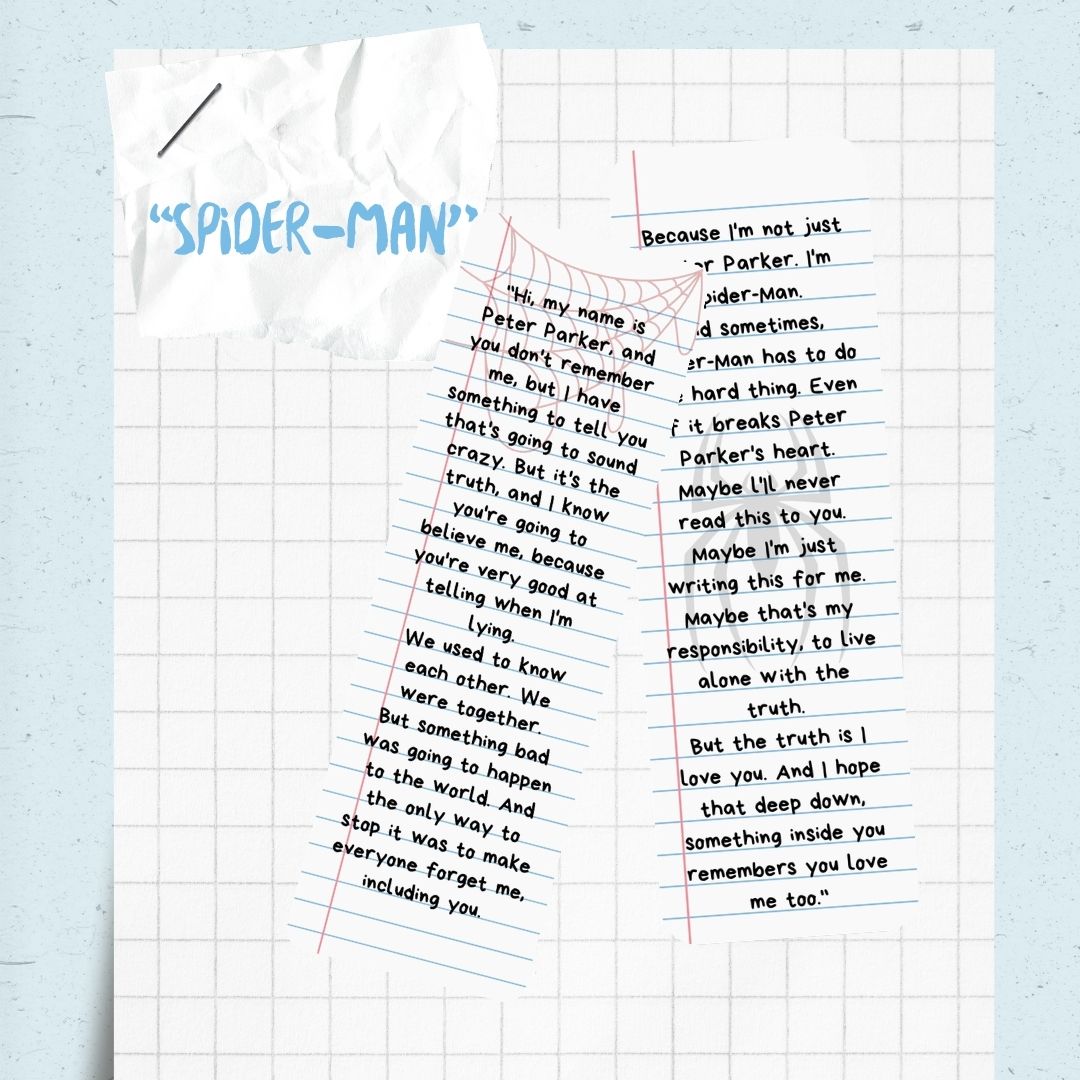 “SPiDER-MAN”
"Hi, my name is
Peter Parker, and
you don't remember
me, but I have
something to tell you
that's going to sound
crazy. But it's the
truth, and I know
you're going to
believe me, because
you're very good at
telling when I'm
lying.
We used to know
each other. We
were together.
But something bad
was going to happen
to the world. And
the only way to
stop it was to make
everyone forget me,
including you.
Because I'm not just
Parker. I'm
sometimes,
has to do
hard thing. Even
it breaks Peter
Parker's heart.
Maybe l'll never
read this to you.
Maybe I'm just
writing this for me.
Maybe that's my
responsibility, to live
alone with the
truth.
But the truth is I
love you. And I hope
that deep down,
something inside you
remembers you love
me too."